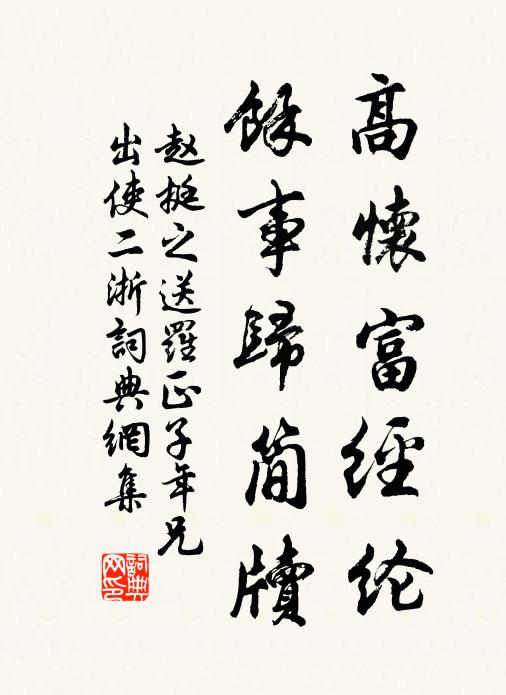 高懷富經纶
餘事歸简牘
赵挺之送羅正子年兄
出使二浙詞典網集
詞典網印